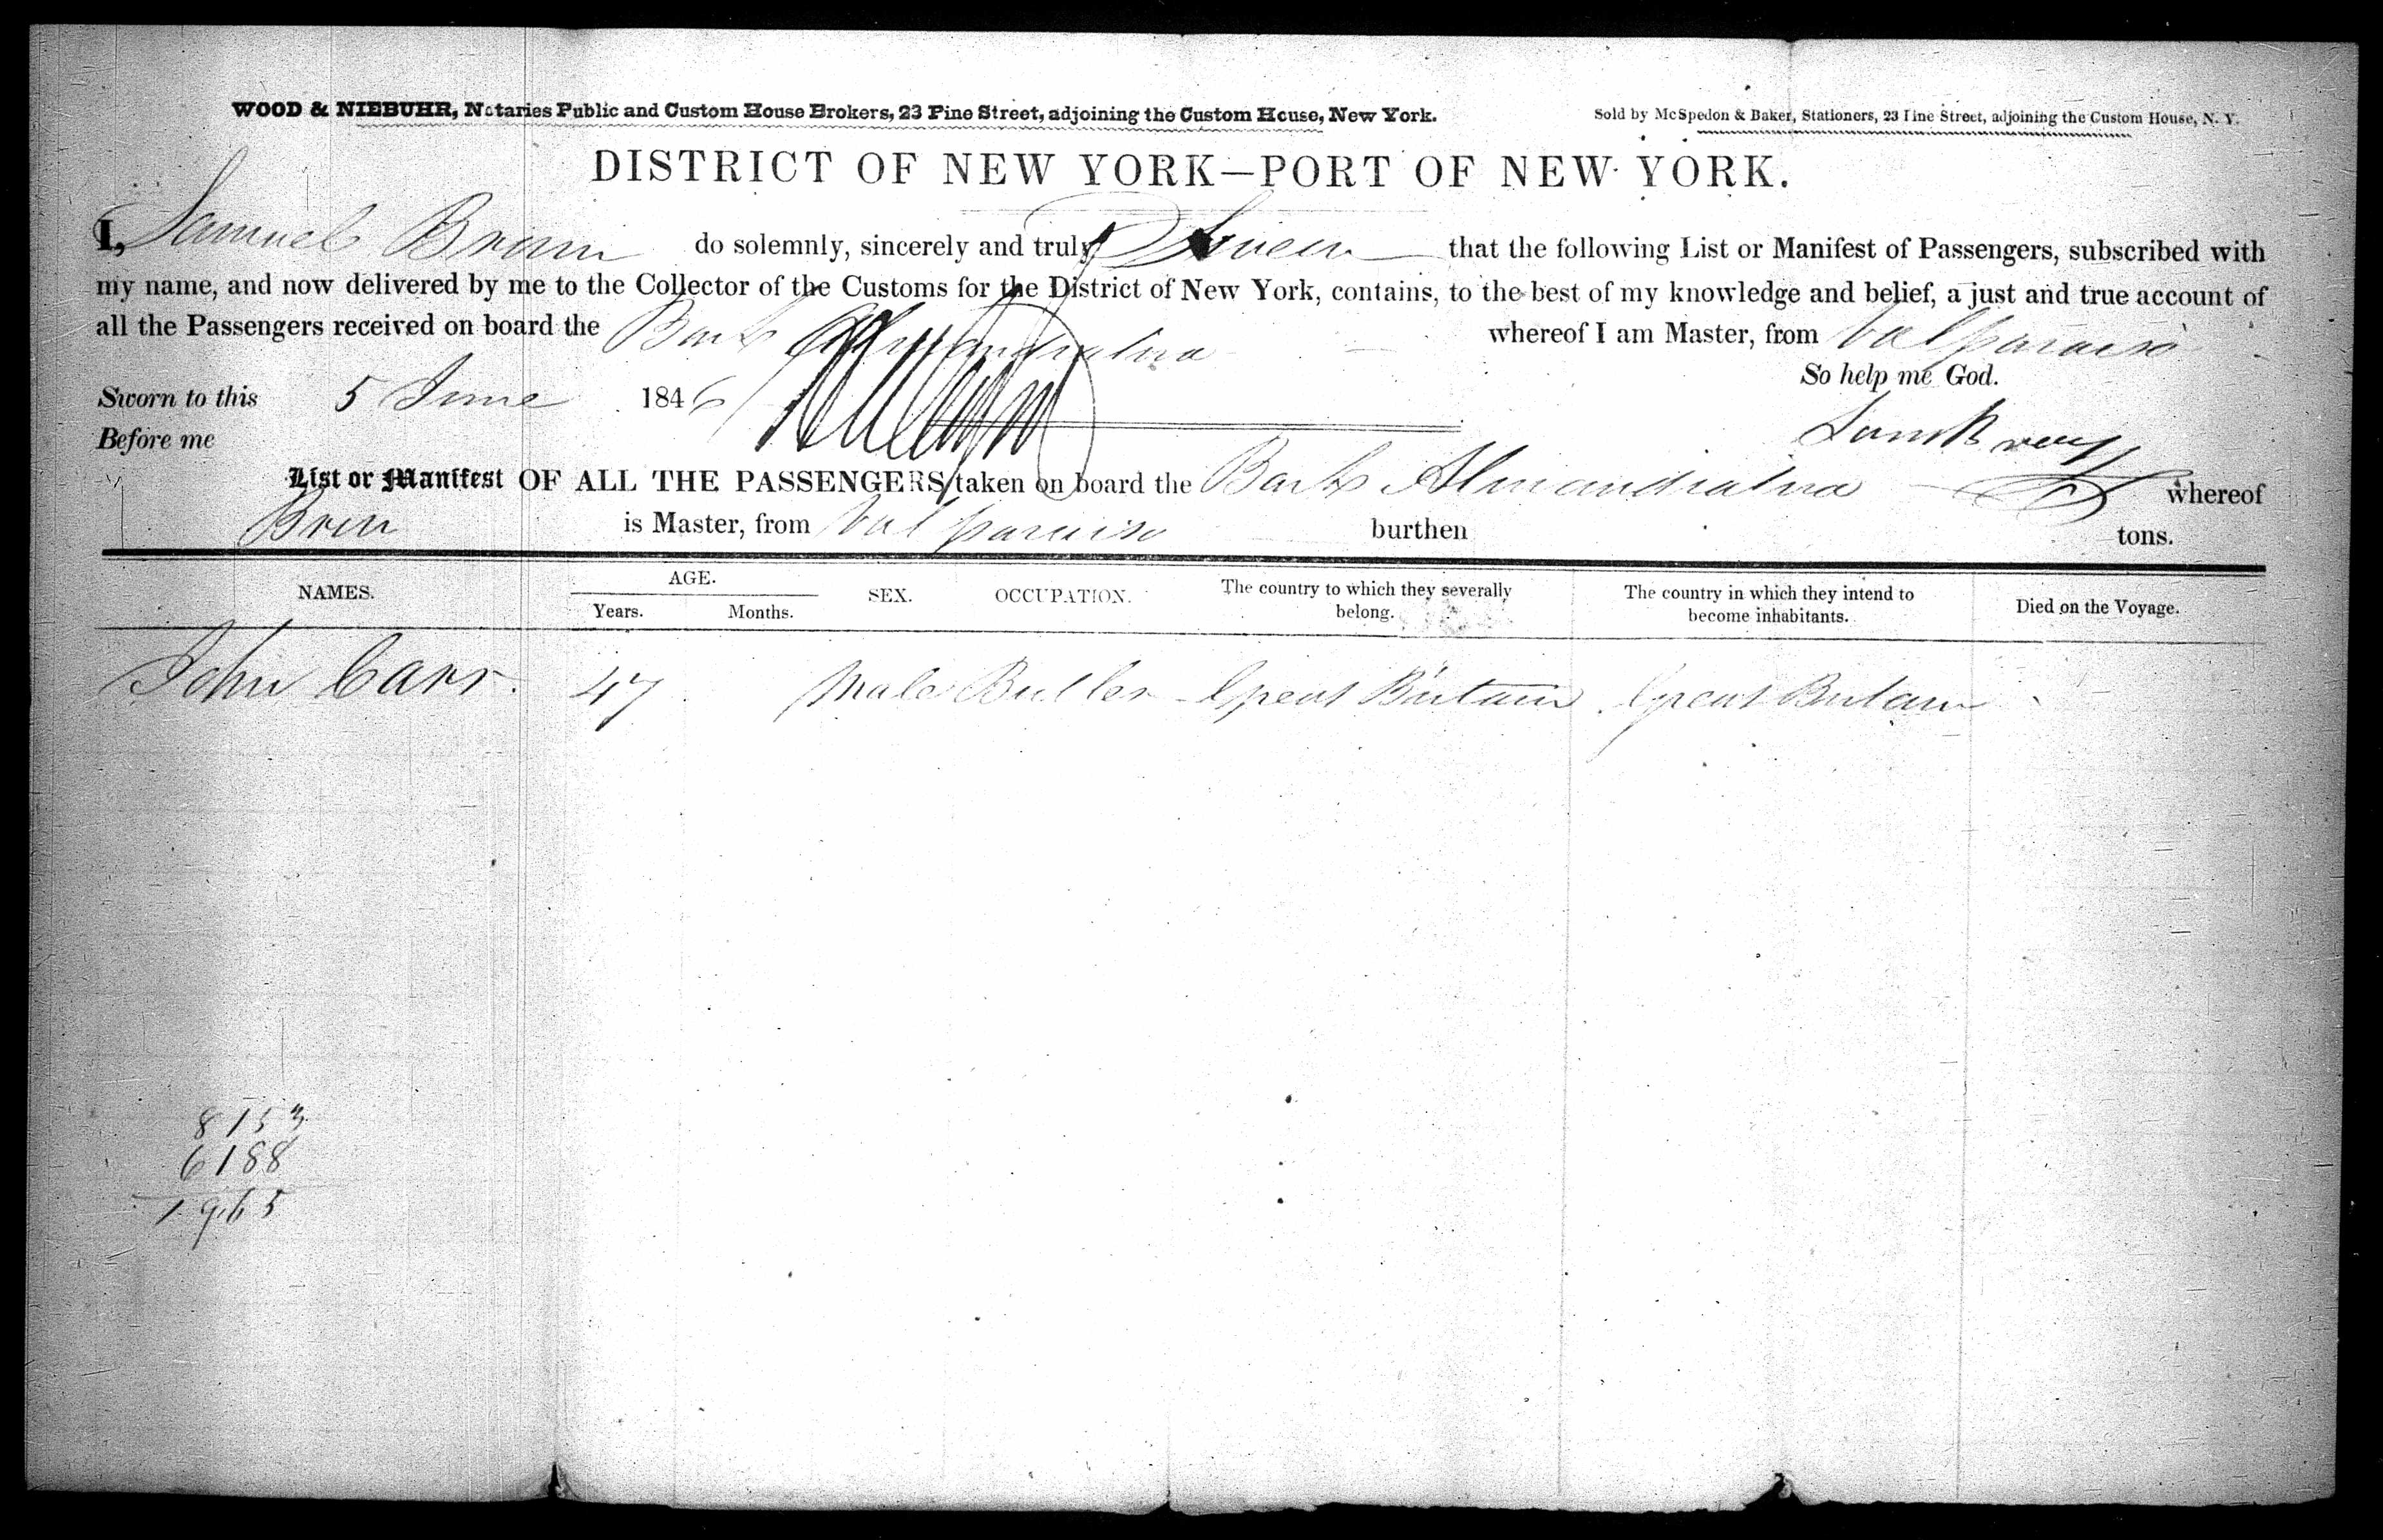 WOOD & NIEBUHR, Notaries Public and Custom House Brokers, 23 Pine Street, adjoining the Custom House, New York.
Sold by McSpedon & Baker, Stationers, 23 Pine Street, adjoining the Custom House, N. Y.
DISTRICT OF NEW YORK—PORT OF NEW YORK.
I, Samuel do solemnly, sincerely and truly Swear that the following List or Manifest of Passengers, subscribed with
my name, and now delivered by me to the Collector of the Customs for the District of New York, contains, to the best of my knowledge and belief, a just and true account of
all the Passengers received on board the Bark whereof I am Master, from Valparaiso
So help me God.
Sworn to this 5 June 1846
Before me
List or Manifest OF ALL THE PASSENGERS taken on board the Bark whereof
is Master, from Valparaiso burthen tons.
NAMES. AGE. Years. Months. SEX. OCCUPATION. The country to which they severally belong. The country in which they intend to become inhabitants. Died on the Voyage.
John Carr. 47 Male Butler Great Britain Great Britain
8153
6188
1965